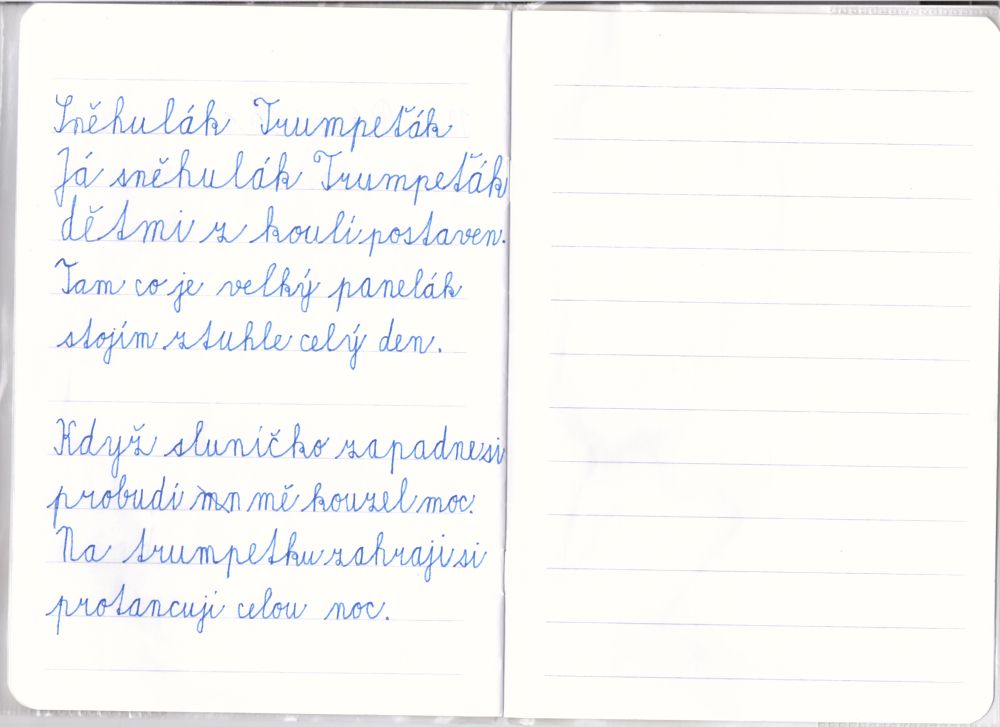 Sněhulák Trumpeťák
Já sněhulák Trumpeťák
dětmi z koulí postaven.
Tam co je velký panelák
stojím ztuhle celý den.
Když sluníčko zapadne si
probudí mě kouzel moc.
Na trumpetku zahraji si
protancuji celou noc.